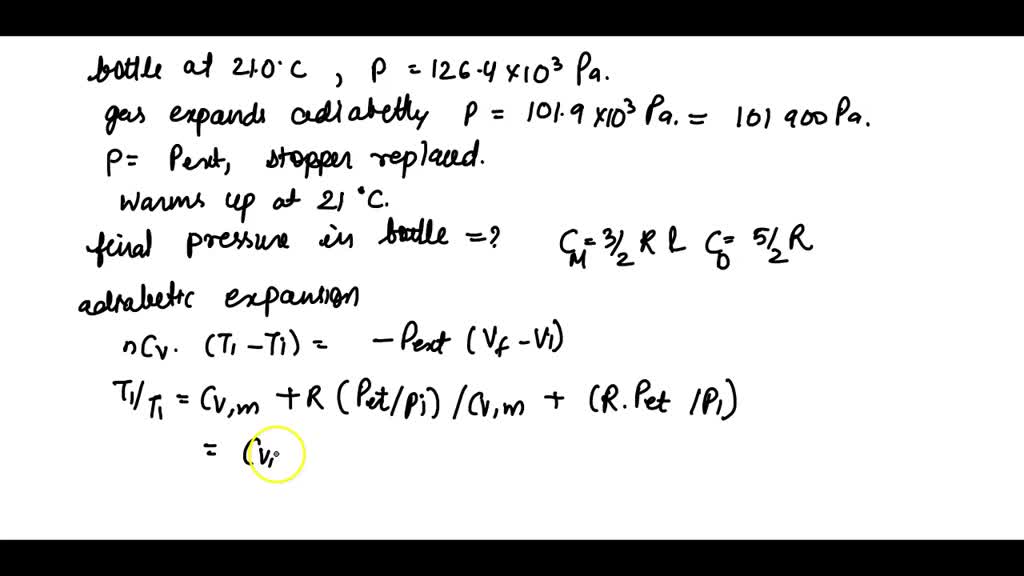 bottle at 210°C, P = 126.4 × 10³ Pa.
gas expands adiabetly P = 101.9 × 10³ Pa. = 101 900 Pa.
P = Pext, stopper replaced.
warms up at 21 °C.
feinal pressure in bottle = ? C_M = 3/2 R & C_D = 5/2 R
adiabetic expansion
nCv. (T₁ - Ti) = - Pext (Vf - Vi)
T₁/T₁ = Cv,m + R (Pet/Pi) / Cv,m + (R. Pet / P₁)
= (Cv,